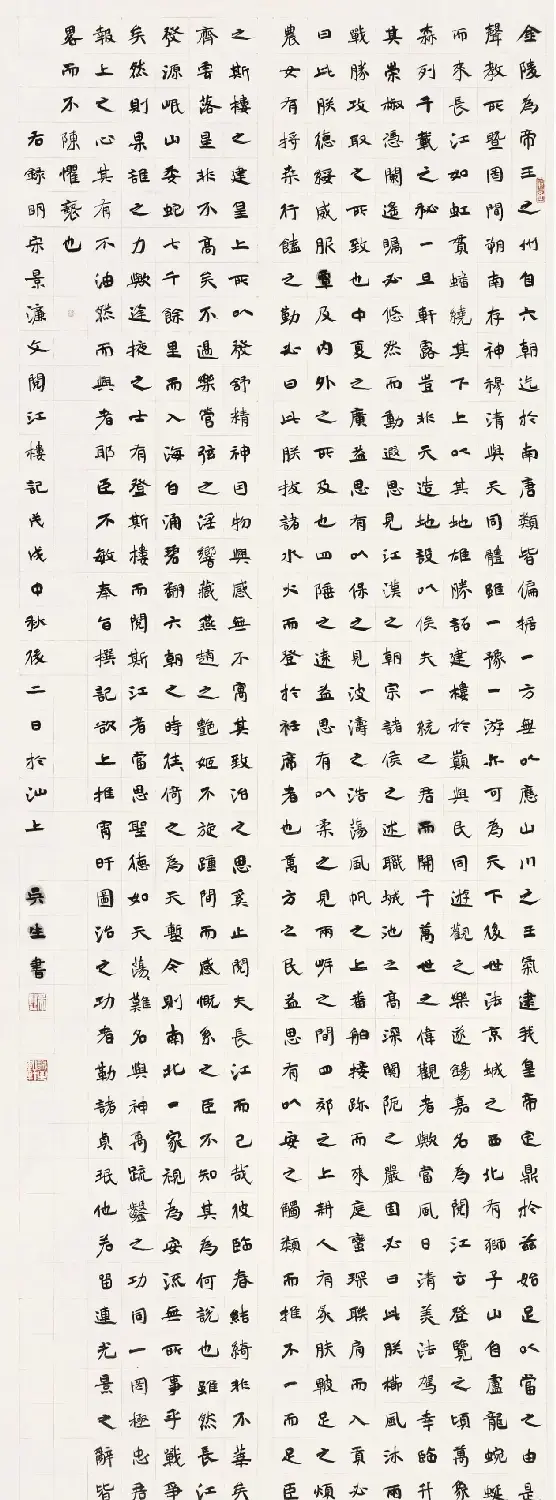 金陵為帝王之州自六朝迄於南唐類皆偏據一方無以應山川之王氣逮我皇帝定鼎於茲始足以當之由是
聲教所暨罔間朔南存神穆清與天同體雖一豫一游亦可為天下後世法京城之西北有獅子山自盧龍蜿蜒
而來長江如虹貫蟠繞其下上以其地雄勝詔建樓於巔與民同遊觀之樂遂錫嘉名為閱江云登覽之頃萬象
森列千載之秘一旦軒露豈非天造地設以俟夫一統之君而開千萬世之偉觀者歟當風日清美法駕幸臨升
其崇椒憑闌遙矚必悠然而動遐思見江漢之朝宗諸侯之述職城池之高深關阨之嚴固必曰此朕櫛風沐雨
戰勝攻取之所致也中夏之廣益思有以保之見波濤之浩蕩風帆之上番舶接跡而來庭蠻琛聯肩而入貢必
曰此朕德綏威服覃及內外之所及也四陲之遠益思有以柔之見兩岸之間四郊之上耕人有炙膚皸足之煩
農女有捋桑行饁之勤必曰此朕拔諸水火而登於衽席者也萬方之民益思有以安之觸類而推不一而足臣
之斯樓之建皇上所以發舒精神因物興感無不寓其致治之思奚止閱夫長江而已哉彼臨春結綺非不華矣
齊雲落星非不高矣不過樂管弦之淫響藏燕趙之艷姬不旋踵間而感慨系之臣不知其為何說也雖然長江
發源岷山委蛇七千餘里而入海白涌碧翻六朝之時往倚之為天塹今則南北一家視為安流無所事乎戰爭
矣然則果誰之力歟逢掖之士有登斯樓而閱斯江者當思聖德如天蕩難名與神禹疏鑿之功同一罔極忠君
報上之心其有不油然而興者耶臣不敏奉旨撰記欲上推宵旰圖治之功者勒諸貞珉他若留連光景之辭皆
畧而不陳懼褻也
右錄明宋景濂文閱江樓記戊戌中秋後二日於汕上 吳生書